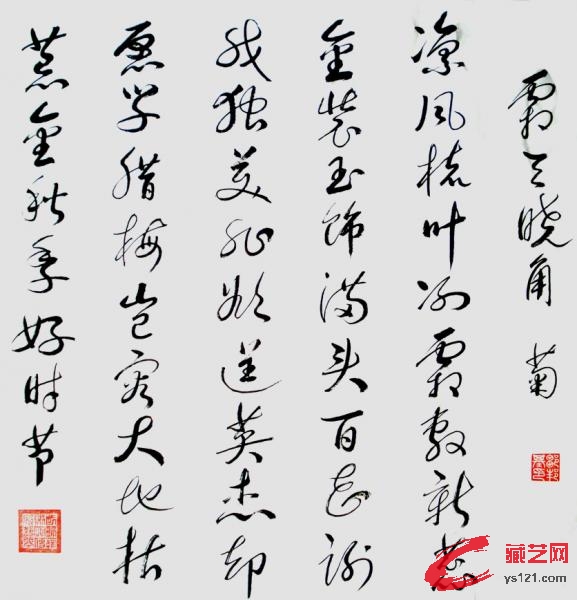 霜天晓角 菊
凉风梳叶冽霜敷新蕊
金装玉饰满头百花谢
我独美非欲逞英杰却
愿学腊梅岂容大地枯
荒金秋季好时节
藏艺网
ys121.com